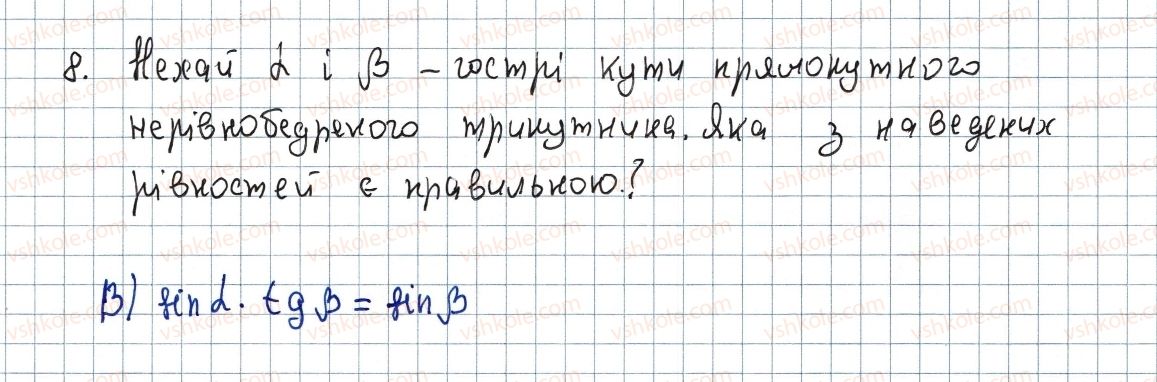 8. Нехай α і β – гострі кути прямокутного
нерівнобедреного трикутника. Яка з наведених
рівностей є правильною?
В) sin α · tg β = sin β